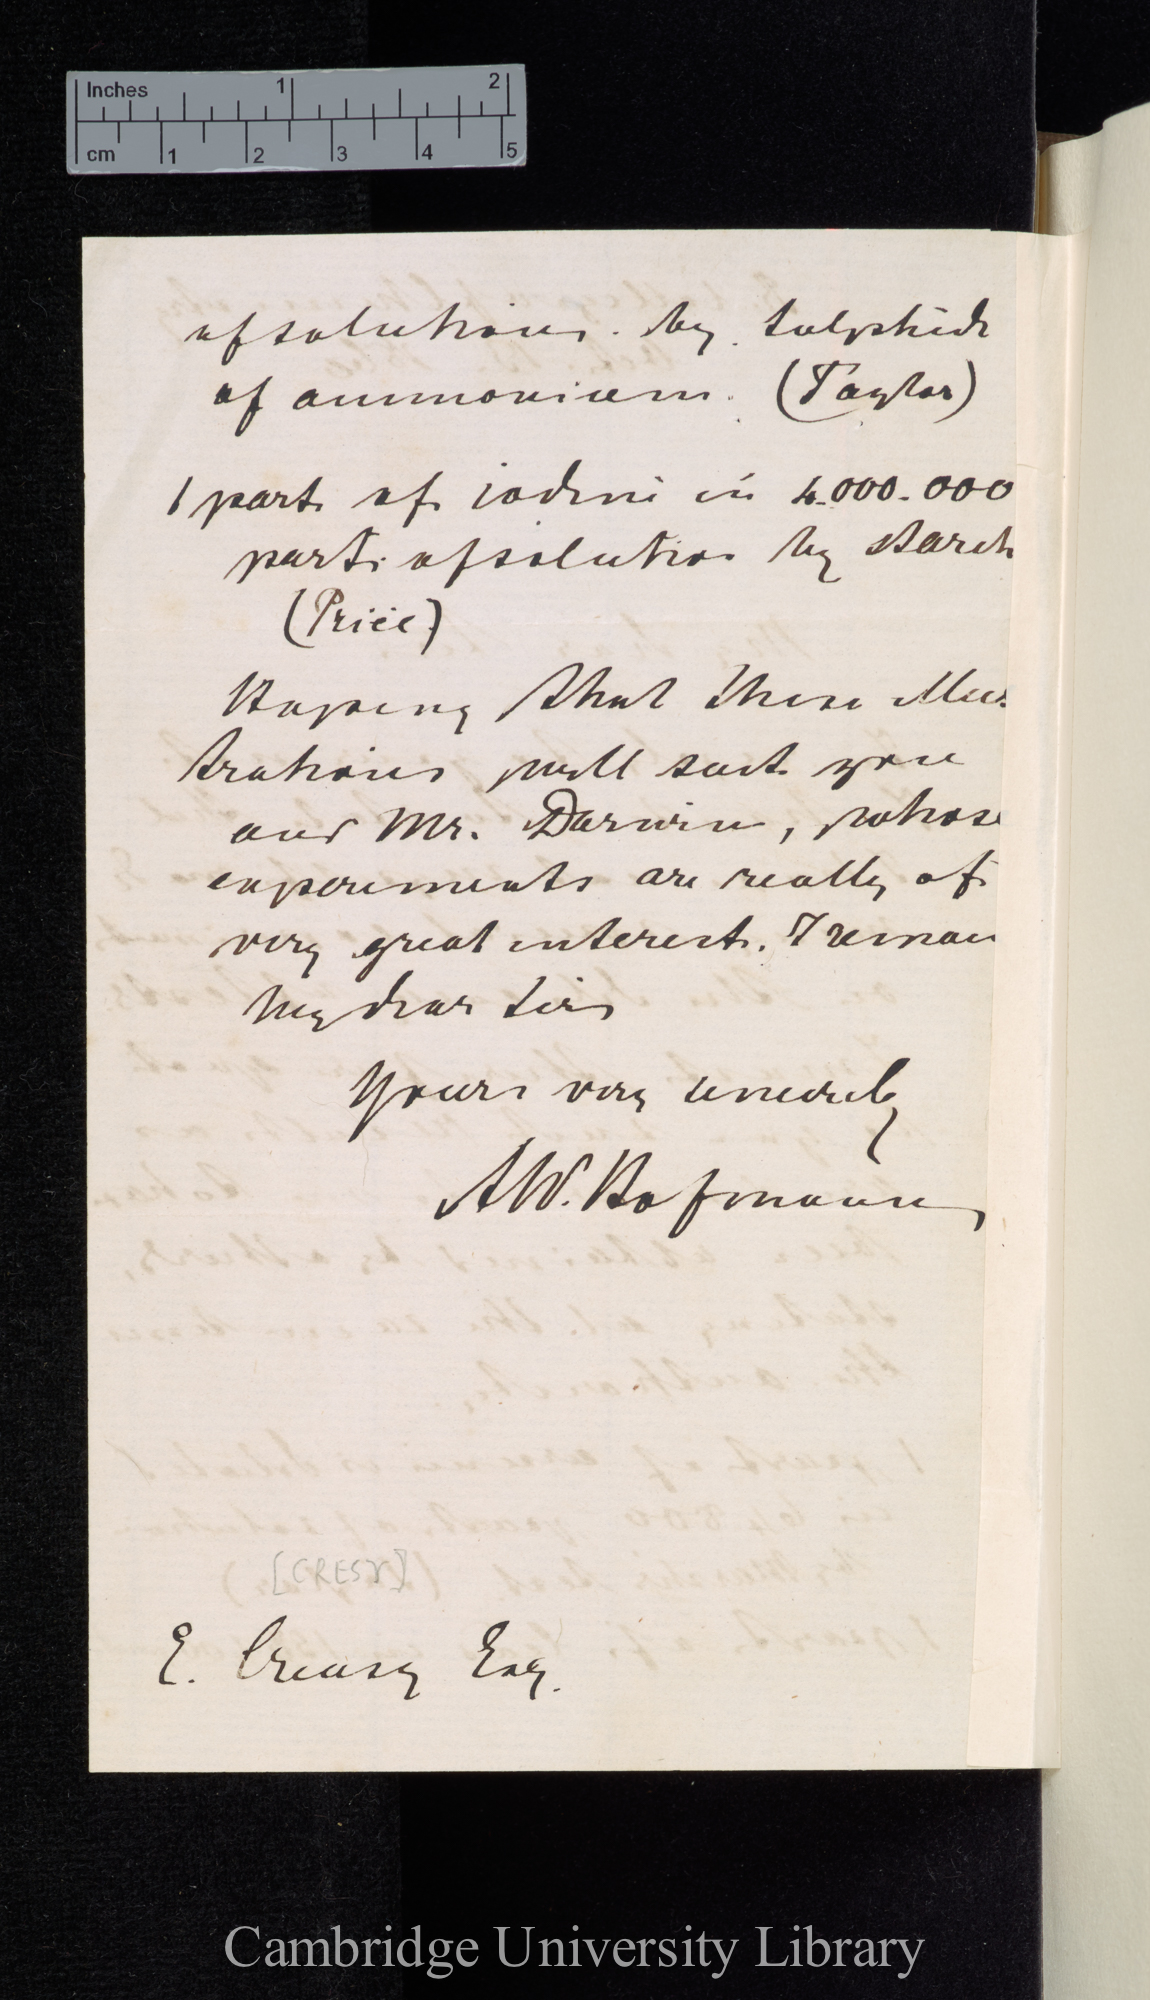 Inches 1 2
cm 1 2 3 4 5
of solutions. by sulphide
of ammonium. (Taylor)
1 part of iodine in 4.000.000
parts of solution by starch
(Price)
Hoping that these illus
trations will suit you
and Mr. Darwin, whose
experiments are really of
very great interest. I remain
My dear Sir
Yours very sincerely
AW. Hofmann
[CRESY]
E. Creasy Esq.
Cambridge University Library